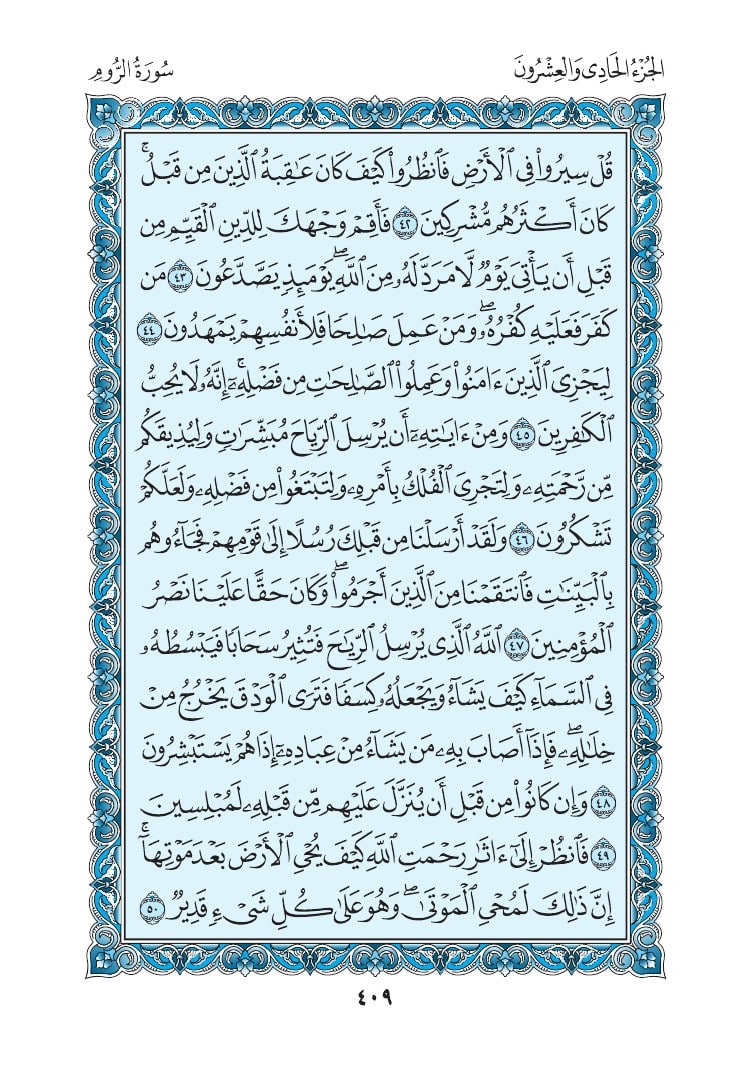 الجُزْءُ الحَادِي وَالعِشْرُونَ
سُورَةُ الرُّومِ
قُلْ سِيرُواْ فِى ٱلْأَرْضِ فَٱنظُرُواْ كَيْفَ كَانَ عَٰقِبَةُ ٱلَّذِينَ مِن قَبْلُۚ
كَانَ أَكْثَرُهُم مُّشْرِكِينَ ٤٢ فَأَقِمْ وَجْهَكَ لِلدِّينِ ٱلْقَيِّمِ مِن
قَبْلِ أَن يَأْتِىَ يَوْمٌ لَّا مَرَدَّ لَهُۥ مِنَ ٱللَّهِۖ يَوْمَئِذٍ يَصَّدَّعُونَ ٤٣ مَن
كَفَرَ فَعَلَيْهِ كُفْرُهُۥۖ وَمَنْ عَمِلَ صَٰلِحًا فَلِأَنفُسِهِمْ يَمْهَدُونَ ٤٤
لِيَجْزِىَ ٱلَّذِينَ ءَامَنُواْ وَعَمِلُواْ ٱلصَّٰلِحَٰتِ مِن فَضْلِهِۦٓۚ إِنَّهُۥ لَا يُحِبُّ
ٱلْكَٰفِرِينَ ٤٥ وَمِنْ ءَايَٰتِهِۦٓ أَن يُرْسِلَ ٱلرِّيَاحَ مُبَشِّرَٰتٍ وَلِيُذِيقَكُم
مِّن رَّحْمَتِهِۦ وَلِتَجْرِىَ ٱلْفُلْكُ بِأَمْرِهِۦ وَلِتَبْتَغُواْ مِن فَضْلِهِۦ وَلَعَلَّكُمْ
تَشْكُرُونَ ٤٦ وَلَقَدْ أَرْسَلْنَا مِن قَبْلِكَ رُسُلًا إِلَىٰ قَوْمِهِمْ فَجَآءُوهُم
بِٱلْبَيِّنَٰتِ فَٱنتَقَمْنَا مِنَ ٱلَّذِينَ أَجْرَمُواْۖ وَكَانَ حَقًّا عَلَيْنَا نَصْرُ
ٱلْمُؤْمِنِينَ ٤٧ ٱللَّهُ ٱلَّذِى يُرْسِلُ ٱلرِّيَٰحَ فَتُثِيرُ سَحَابًا فَيَبْسُطُهُۥ
فِى ٱلسَّمَآءِ كَيْفَ يَشَآءُ وَيَجْعَلُهُۥ كِسَفًا فَتَرَى ٱلْوَدْقَ يَخْرُجُ مِنْ
خِلَٰلِهِۦۖ فَإِذَآ أَصَابَ بِهِۦ مَن يَشَآءُ مِنْ عِبَادِهِۦٓ إِذَا هُمْ يَسْتَبْشِرُونَ
٤٨ وَإِن كَانُواْ مِن قَبْلِ أَن يُنَزَّلَ عَلَيْهِم مِّن قَبْلِهِۦ لَمُبْلِسِينَ
٤٩ فَٱنظُرْ إِلَىٰٓ ءَاثَٰرِ رَحْمَتِ ٱللَّهِ كَيْفَ يُحْىِ ٱلْأَرْضَ بَعْدَ مَوْتِهَآۚ
إِنَّ ذَٰلِكَ لَمُحْىِ ٱلْمَوْتَىٰۖ وَهُوَ عَلَىٰ كُلِّ شَىْءٍ قَدِيرٌ ٥٠
٤٠٩